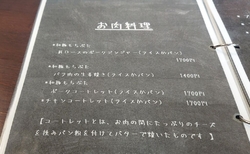 お肉料理
・和豚もちぶた
(ライスかパン)
1700円
・和豚もちぶた
バラ肉の生姜焼き(ライスかパン)
1600円
・和豚もちぶた
ポークコートレット(ライスかパン)
1700円
・チキンコートレット(ライスかパン)
1700円
【コートレットとは、お肉の間にたっぷりのチーズ
を挟みパン粉を付けてバターで焼いたものです】